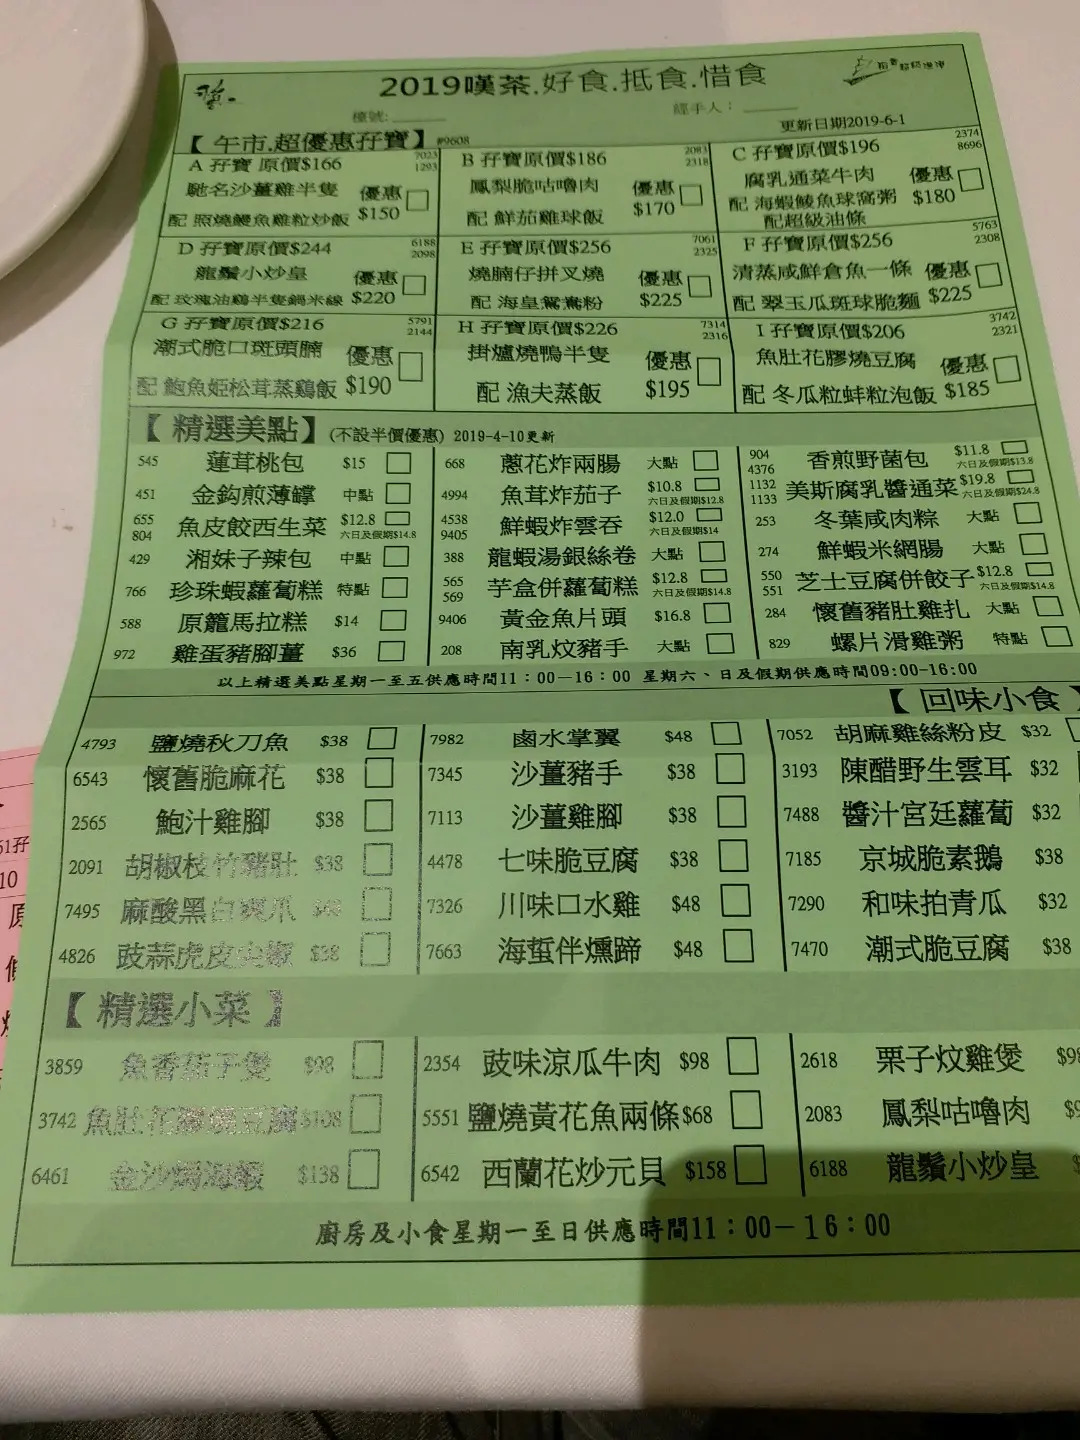 2019嘆茶.好食.抵食.惜食
檯號:______ 經手人：______
更新日期2019-6-1
【 午市.超優惠孖寶 】 #9608
A 孖寶 原價$166 7023 1293
馳名沙薑雞半隻 優惠
配 照燒鰻魚雞粒炒飯 $150
B 孖寶原價$186 2083 2318
鳳梨脆咕嚕肉 優惠
配 鮮茄雞球飯 $170
C 孖寶原價$196 2374 8696
腐乳通菜牛肉 優惠
配 海蝦鲮魚球窩粥 $180
配超級油條
D 孖寶原價$244 6188 2098
龍鬚小炒皇 優惠
配 玫瑰油鷄半隻鍋米線 $220
E 孖寶原價$256 7061 2325
燒腩仔拼叉燒 優惠
配 海皇鴛鴦粉 $225
F 孖寶原價$256 5763 2308
清蒸咸鮮倉魚一條 優惠
配 翠玉瓜斑球脆麵 $225
G 孖寶原價$216 5791 2144
潮式脆口斑頭腩 優惠
配 鮑魚姬松茸蒸鷄飯 $190
H 孖寶原價$226 7314 2316
掛爐燒鴨半隻 優惠
配 漁夫蒸飯 $195
I 孖寶原價$206 3742 2321
魚肚花膠燒豆腐 優惠
配 冬瓜粒蚌粒泡飯 $185
【 精選美點】 (不設半價優惠) 2019-4-10更新
545 蓮茸桃包 $15
668 蔥花炸兩腸 大點
904 4376 香煎野菌包 $11.8 六日及假期$13.8
451 金鈎煎薄罉 中點
4994 魚茸炸茄子 $10.8 六日及假期$12.8
1132 1133 美斯腐乳醬通菜 $19.8 六日及假期$24.8
655 804 魚皮餃西生菜 $12.8 六日及假期$14.8
4538 9405 鮮蝦炸雲吞 $12.0 六日及假期$14
253 冬葉咸肉粽 大點
429 湘妹子辣包 中點
388 龍蝦湯銀絲卷 大點
274 鮮蝦米網腸 大點
766 珍珠蝦蘿蔔糕 特點
565 569 芋盒併蘿蔔糕 $12.8 六日及假期$14.8
550 551 芝士豆腐併餃子 $12.8 六日及假期$14.8
588 原籠馬拉糕 $14
9406 黃金魚片頭 $16.8
284 懷舊豬肚雞扎 大點
972 雞蛋豬腳薑 $36
208 南乳炆豬手 大點
829 螺片滑雞粥 特點
以上精選美點星期一至五供應時間11：00－16：00 星期六、日及假期供應時間09:00-16:00
【 回味小食
4793 鹽燒秋刀魚 $38
7982 鹵水掌翼 $48
7052 胡麻雞絲粉皮 $32
6543 懷舊脆麻花 $38
7345 沙薑豬手 $38
3193 陳醋野生雲耳 $32
2565 鮑汁雞腳 $38
7113 沙薑雞腳 $38
7488 醬汁宮廷蘿蔔 $32
2091 胡椒枝竹豬肚 $38
4478 七味脆豆腐 $38
7185 京城脆素鵝 $38
7495 麻酸黑白爽爪 $48
7326 川味口水雞 $48
7290 和味拍青瓜 $32
4826 豉蒜虎皮尖椒 $38
7663 海蜇伴燻蹄 $48
7470 潮式脆豆腐 $38
【 精選小菜 】
3859 魚香茄子煲 $98
2354 豉味涼瓜牛肉 $98
2618 栗子炆雞煲
3742 魚肚花膠燒豆腐 $108
5551 鹽燒黃花魚兩條 $68
2083 鳳梨咕嚕肉
6461 金沙焗海蝦 $138
6542 西蘭花炒元貝 $158
6188 龍鬚小炒皇
廚房及小食星期一至日供應時間11：00－16：00
51孖
10